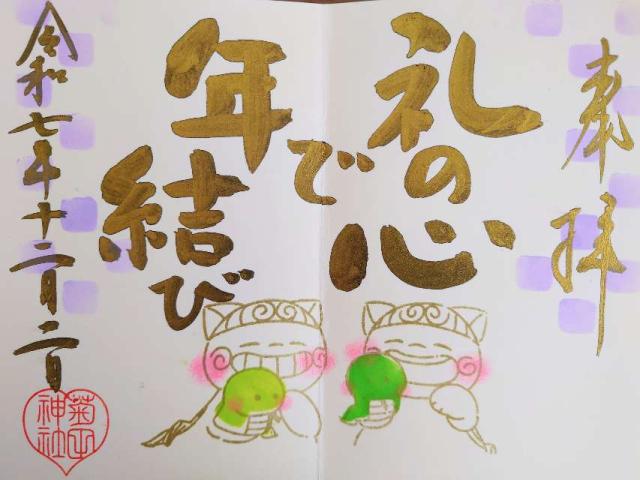 奉拝
礼の心
で
年
結び
令和七年十二月二日
菊田
神社